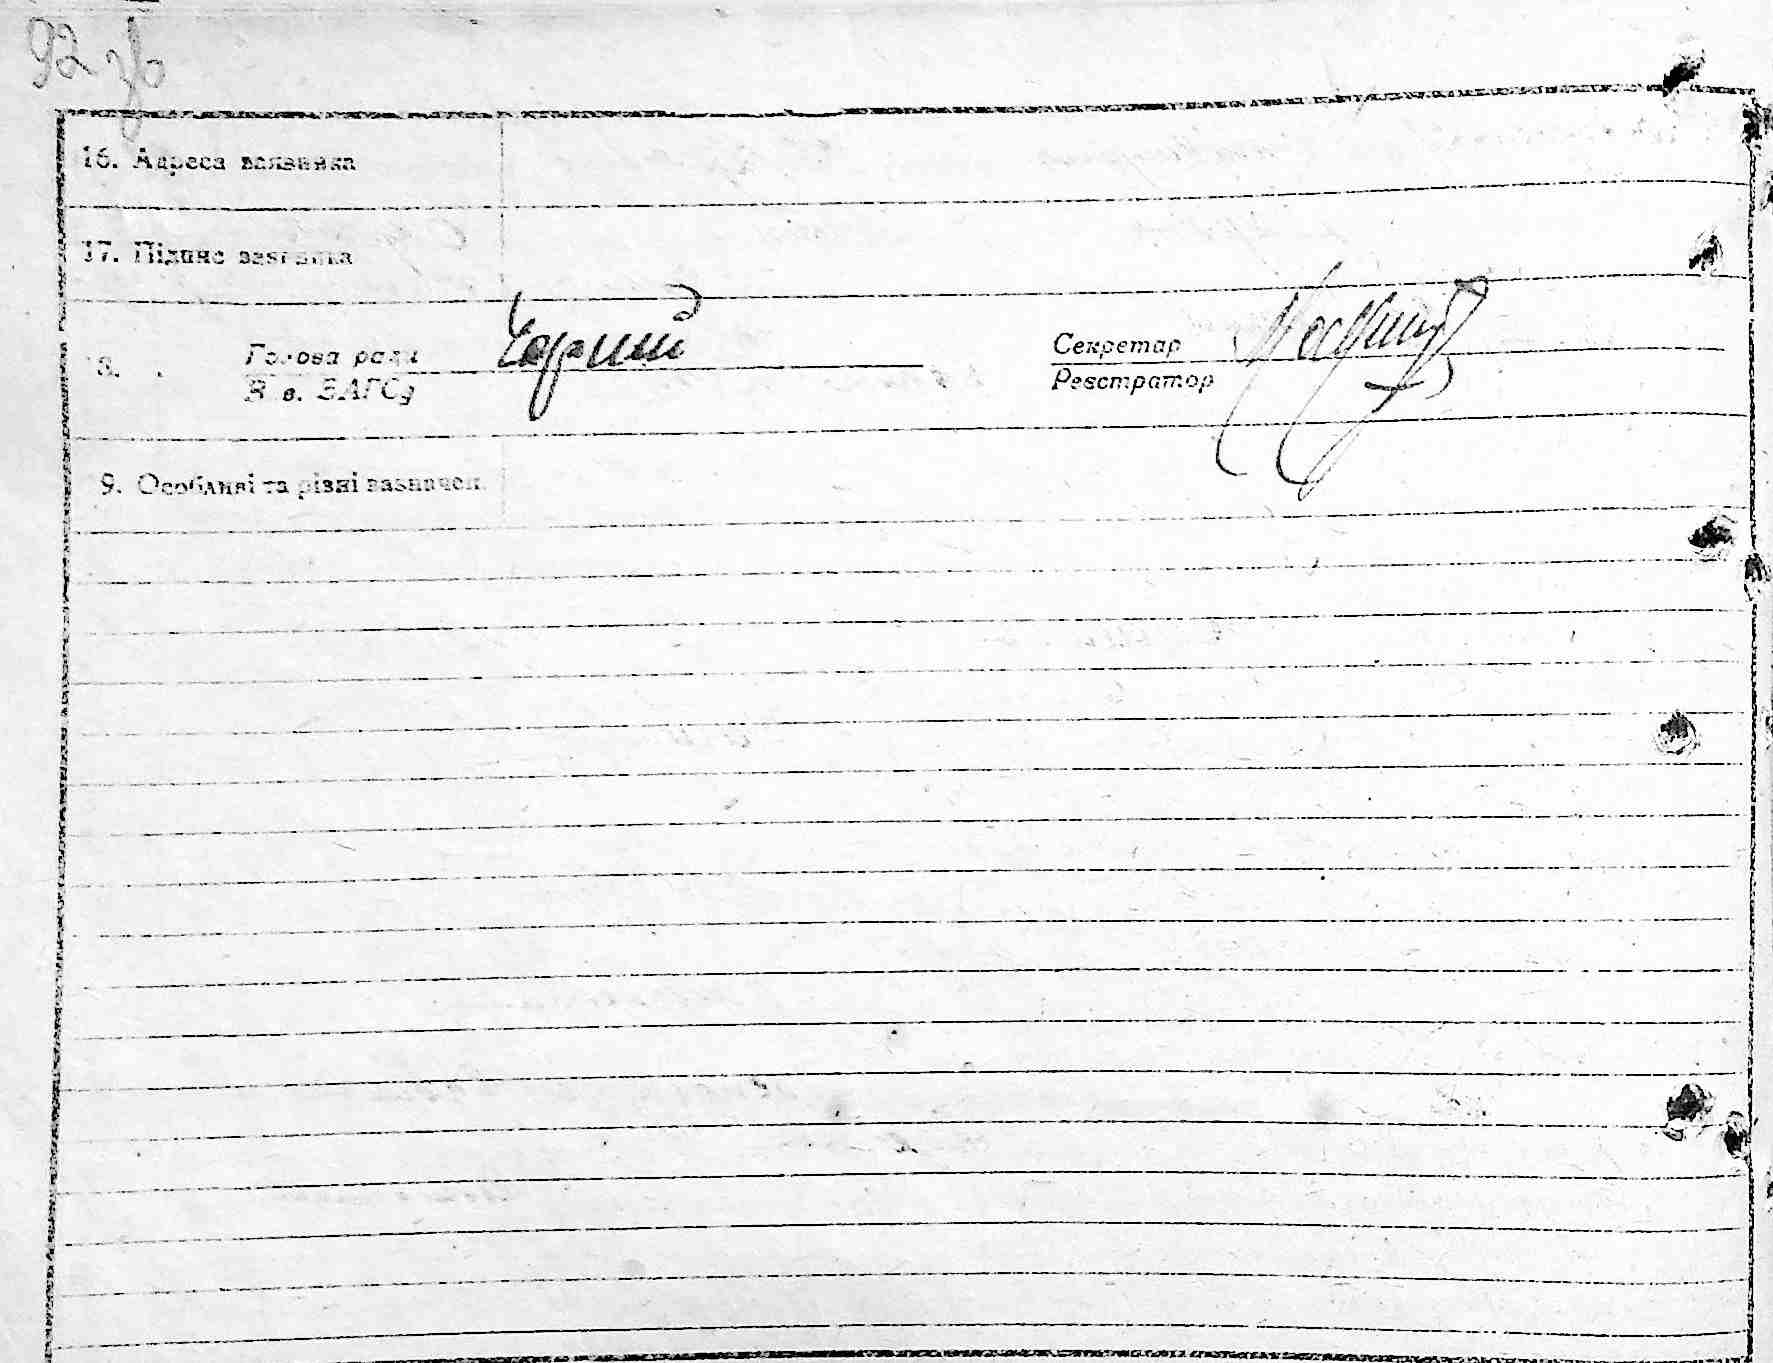 92 зв
16. Адреса заявника
17. Підпис заявника
18. Голова ради Чорний Секретар
Зав. ЗАГСу Реєстратор
19. Особливі та різні зазначен.